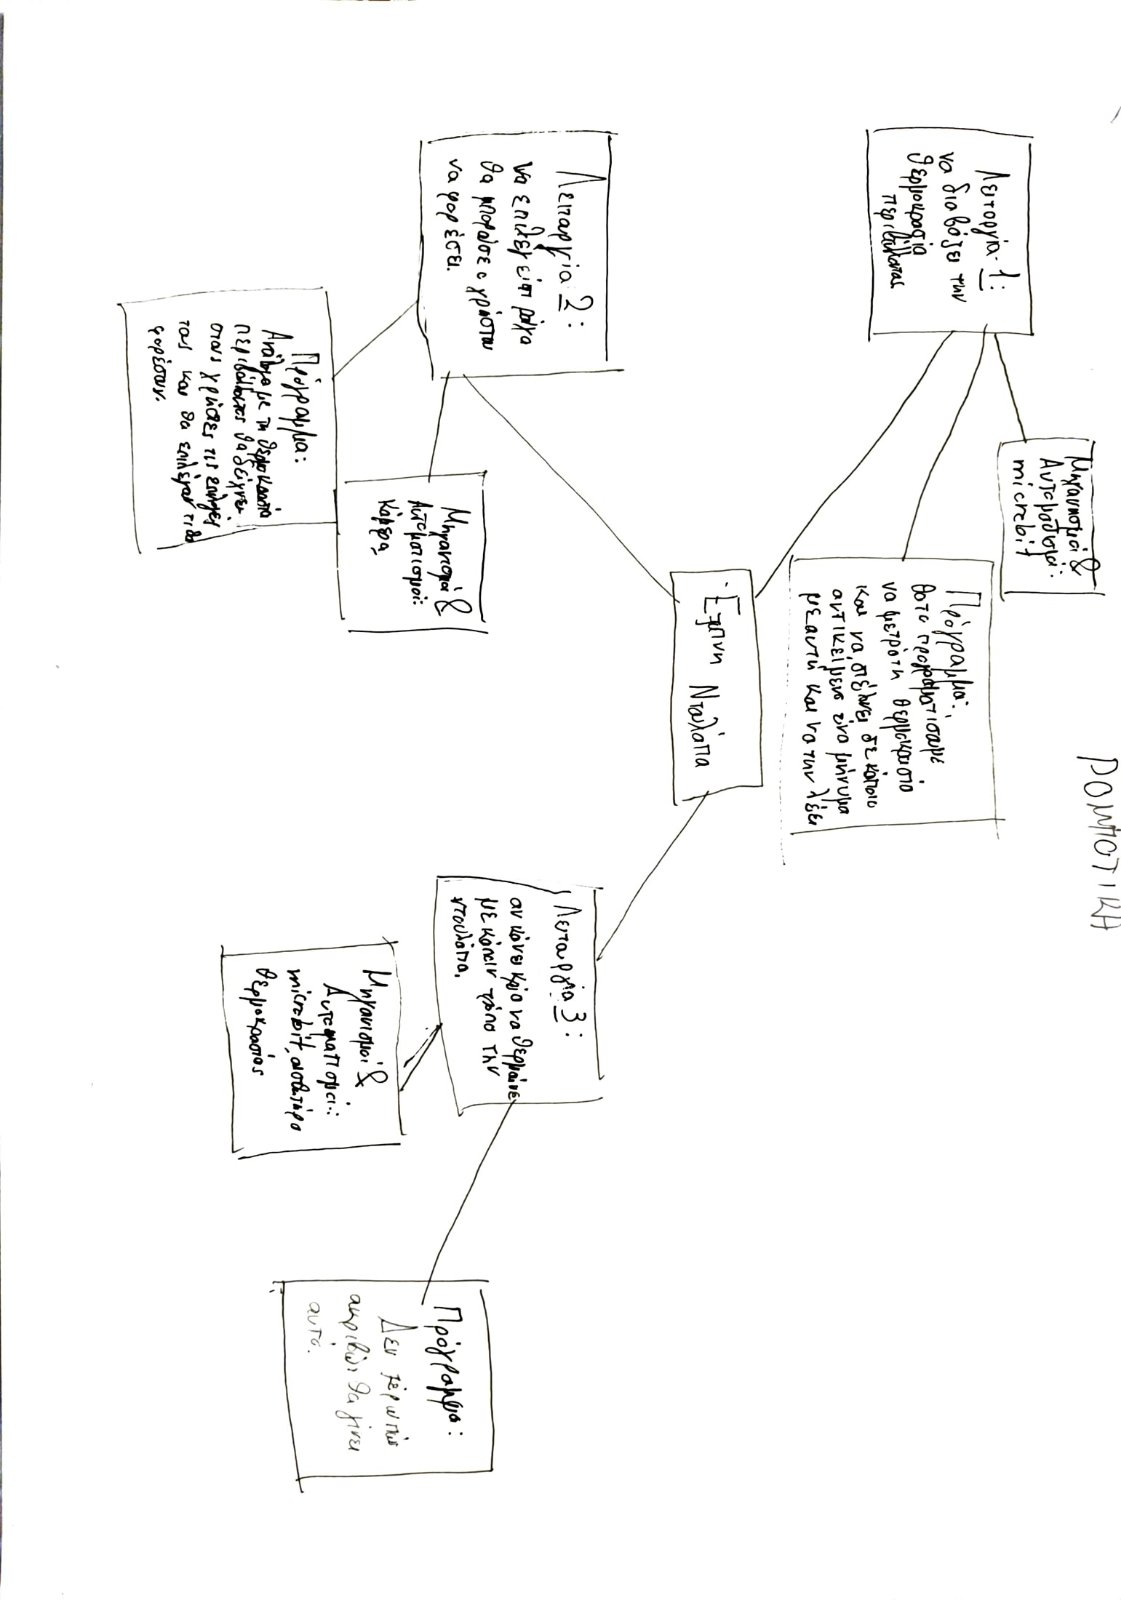 ΡΟΜΠΟΤΙΚΗ
Μηχανισμοί &
Αυτοματισμοί:
microbit
Λειτοργία 1:
να διαβάζει την
θερμοκρασία
περιβάλλοντος
Πρόγραμμα:
θα το προγραμματίσουμε
να μετρά τη θερμοκρασία
και να στέλνει σε κάποιο
αντικείμενο ένα μήνυμα
με αυτή και να την λέει
Έξυπνη Ντουλάπα
Λειτουργία 2:
να επιλέγει τι ρούχα
θα μπορούσε ο χρήστης
να φορέσει.
Μηχανισμοί &
Αυτοματισμοί:
Κάμερα
Πρόγραμμα:
Ανάλογα με τη θερμοκρασία
περιβάλλοντος θα δείχνει
στους χρήστες τις επιλογές
τους και θα επιλέγουν τι θα
φορέσουν.
Λειτουργία 3:
αν κάνει κρύο να θερμαίνει
με κάποιν τρόπο την
ντουλάπα.
Μηχανισμοί &
Αυτοματισμοί:
microbit, αισθητήρα
θερμοκρασίας
Πρόγραμμα:
Δεν ξέρω πώς
ακριβώς θα γίνει
αυτό.